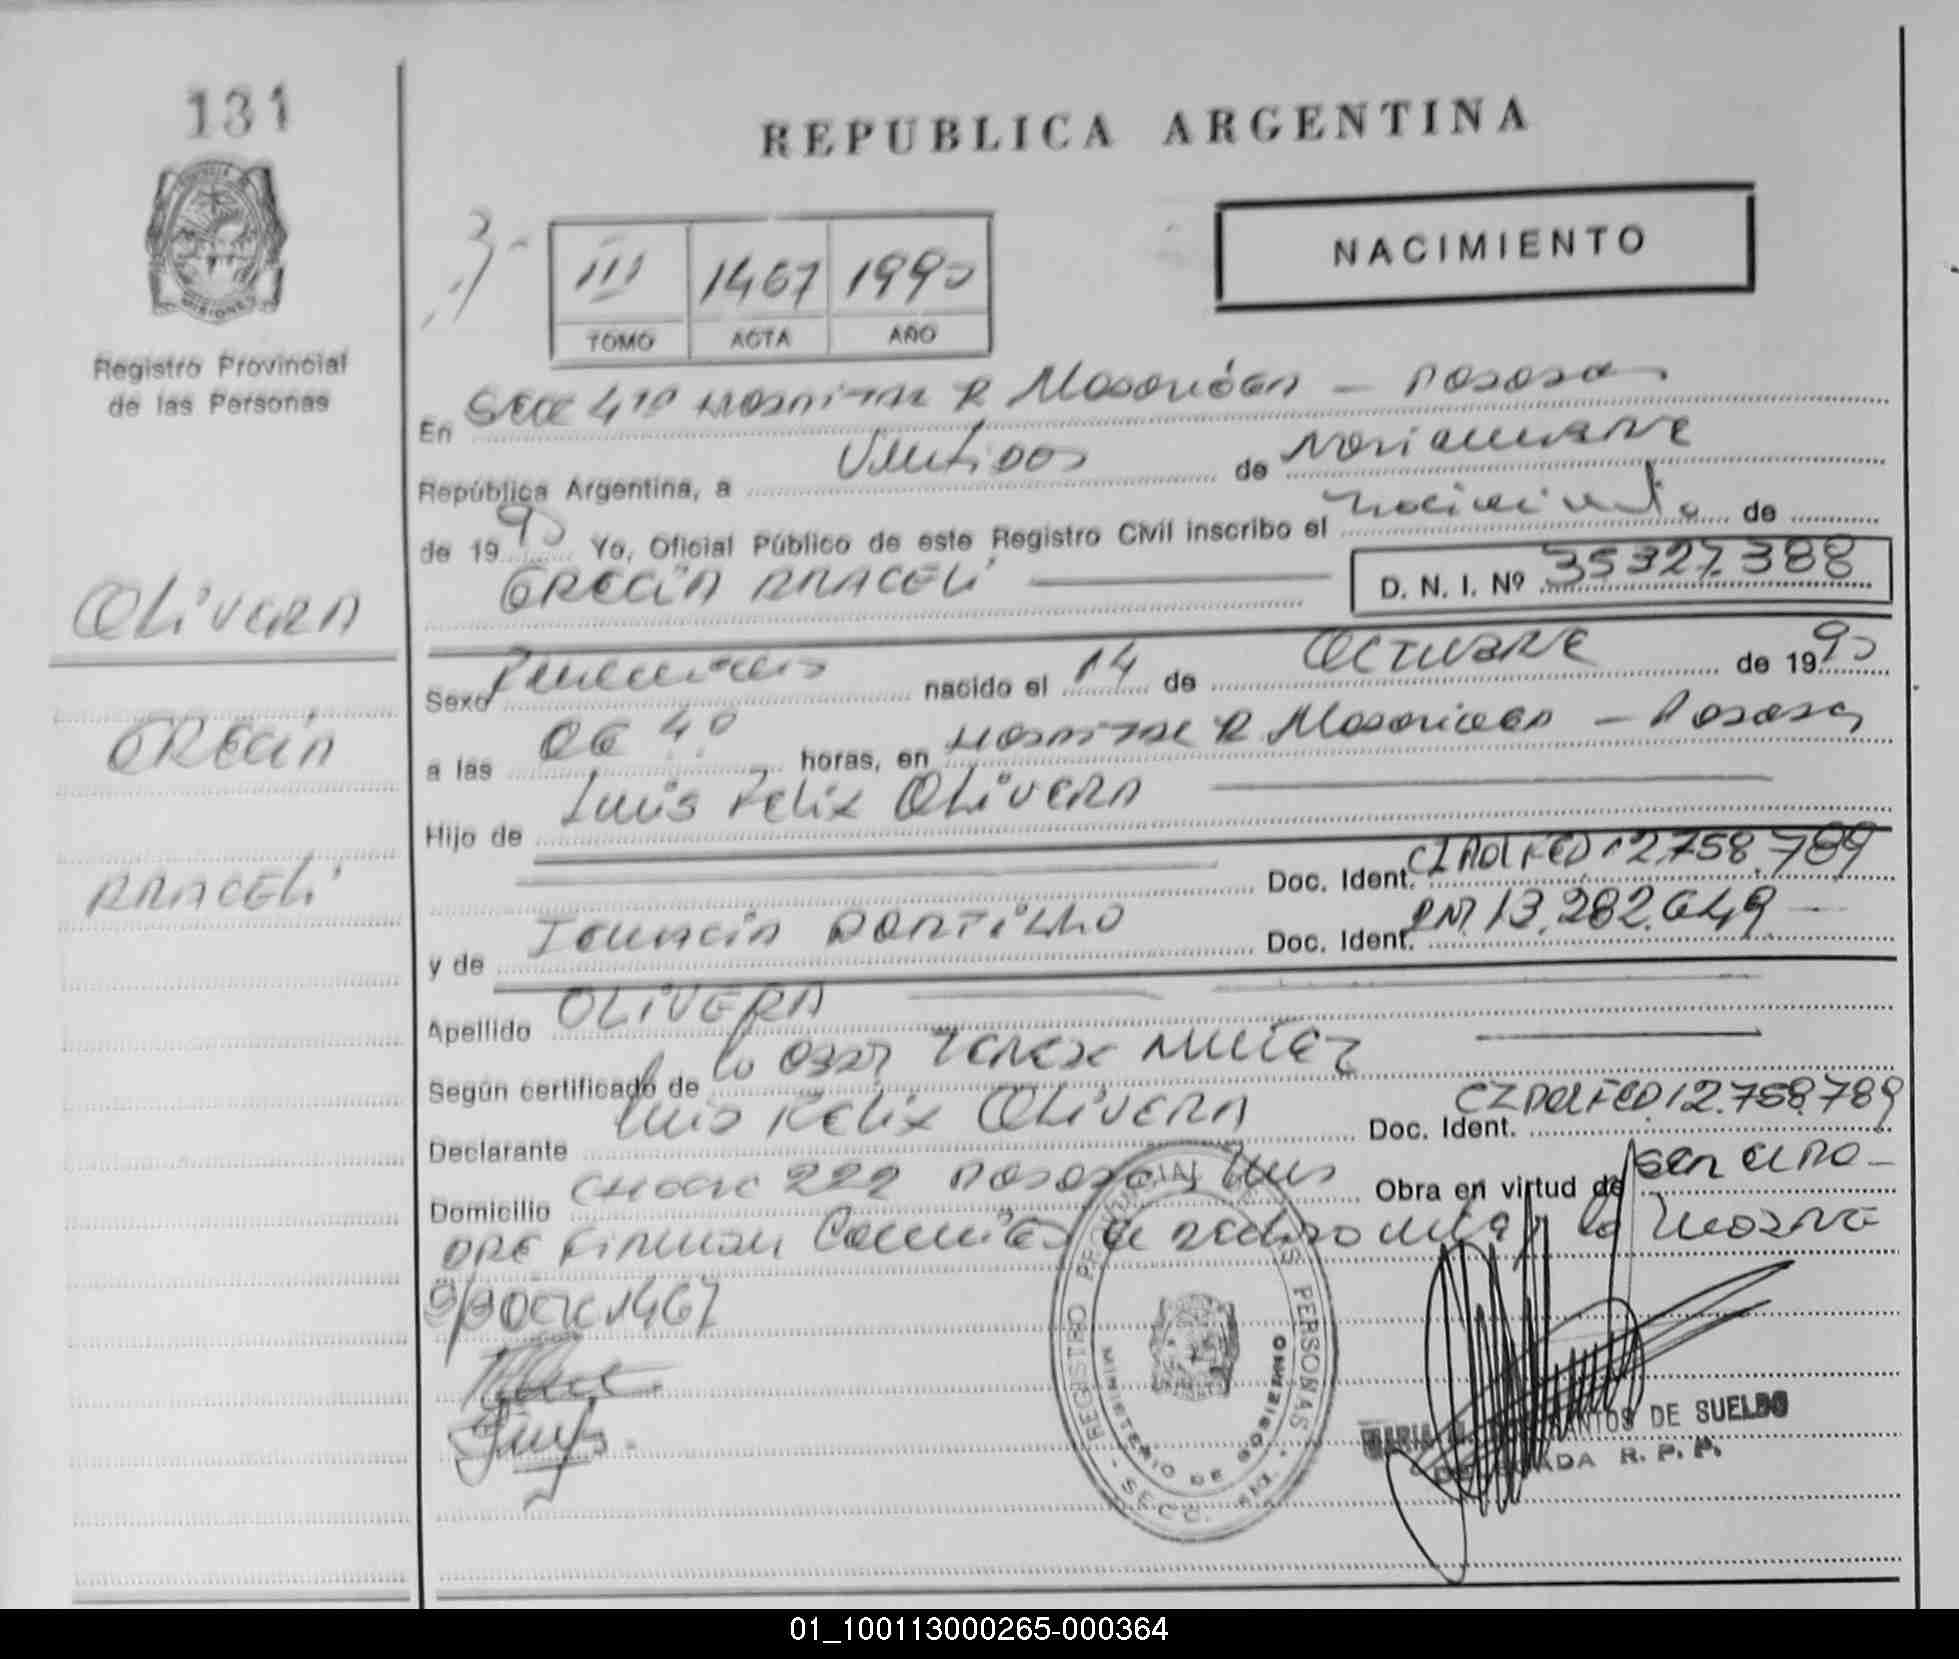 131
REPUBLICA ARGENTINA
NACIMIENTO
III 1467 1990
TOMO ACTA AÑO
MISIONES
Registro Provincial
de las Personas
En Secc 4ta Hospital R Madariaga - Posadas
República Argentina, a Veintidos de Noviembre
de 1990 Yo, Oficial Público de este Registro Civil inscribo el nacimiento de
GRECIA ARACELI D. N. I. Nº 35327388
OLIVERA
GRECIA
ARACELI
Sexo Femenino nacido el 14 de OCTUBRE de 1990
a las 06 40 horas, en Hospital R Madariaga - Posadas
Hijo de Luis Felix OLIVERA
Doc. Ident. CI POL FED 12.758.789
y de IGNACIA PORTILLO Doc. Ident. DNI 13.282.649
Apellido OLIVERA
Según certificado de la
Declarante Luis Felix OLIVERA Doc. Ident. CI POL FED 12.758.789
Domicilio 222 Posadas Obra en virtud de ser el Pa-
dre la Madre
1467
REGISTRO PROVINCIAL DE LAS PERSONAS
MINISTERIO DE GOBIERNO
SECC. 4ta.
DE SUELDO
DELEGADA R. P. P.
01_100113000265-000364